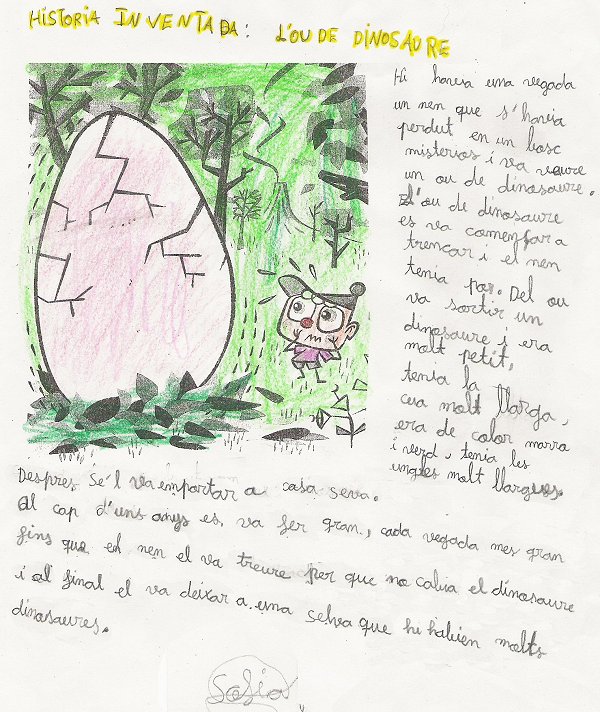 HISTORIA INVENTADA: L'OU DE DINOSAURE
Hi havia una vegada
un nen que s'havia
perdut en un bosc
misterios i va veure
un ou de dinosaure.
L'ou de dinosaure
es va començar a
trencar i el nen
tenia por. Del ou
va sortir un
dinosaure i era
molt petit,
tenia la
cua molt llarga,
era de color marro
i verd, tenia les
ungles molt llargues.
Despres se'l va emportar a casa seva.
Al cap d'uns anys es va fer gran, cada vegada mes gran
fins que el nen el va treure per que no cabia el dinosaure
i al final el va deixar a una selva que hi habien molts
dinosaures.
Sofia